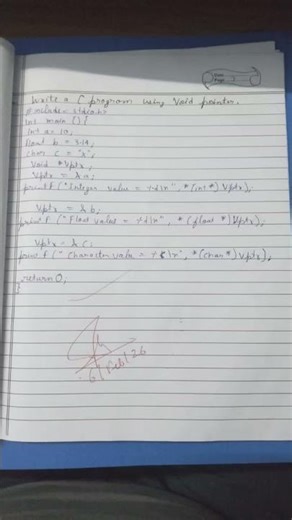 Date
Page 3
Write a C program using Void pointer.
#include <stdio.h>
int main () {
int a = 10;
float b = 3.14;
char c = 'x';
Void *Vptr;
Vptr = & a;
printf ("Integer value = %d\n", *(int *) Vptr);
Vptr = & b;
printf ("Float value = %d\n", *(float *) Vptr);
Vptr = & c;
printf ("Character value = %c\n", *(char *) Vptr);
return 0;
}
6/Feb/26